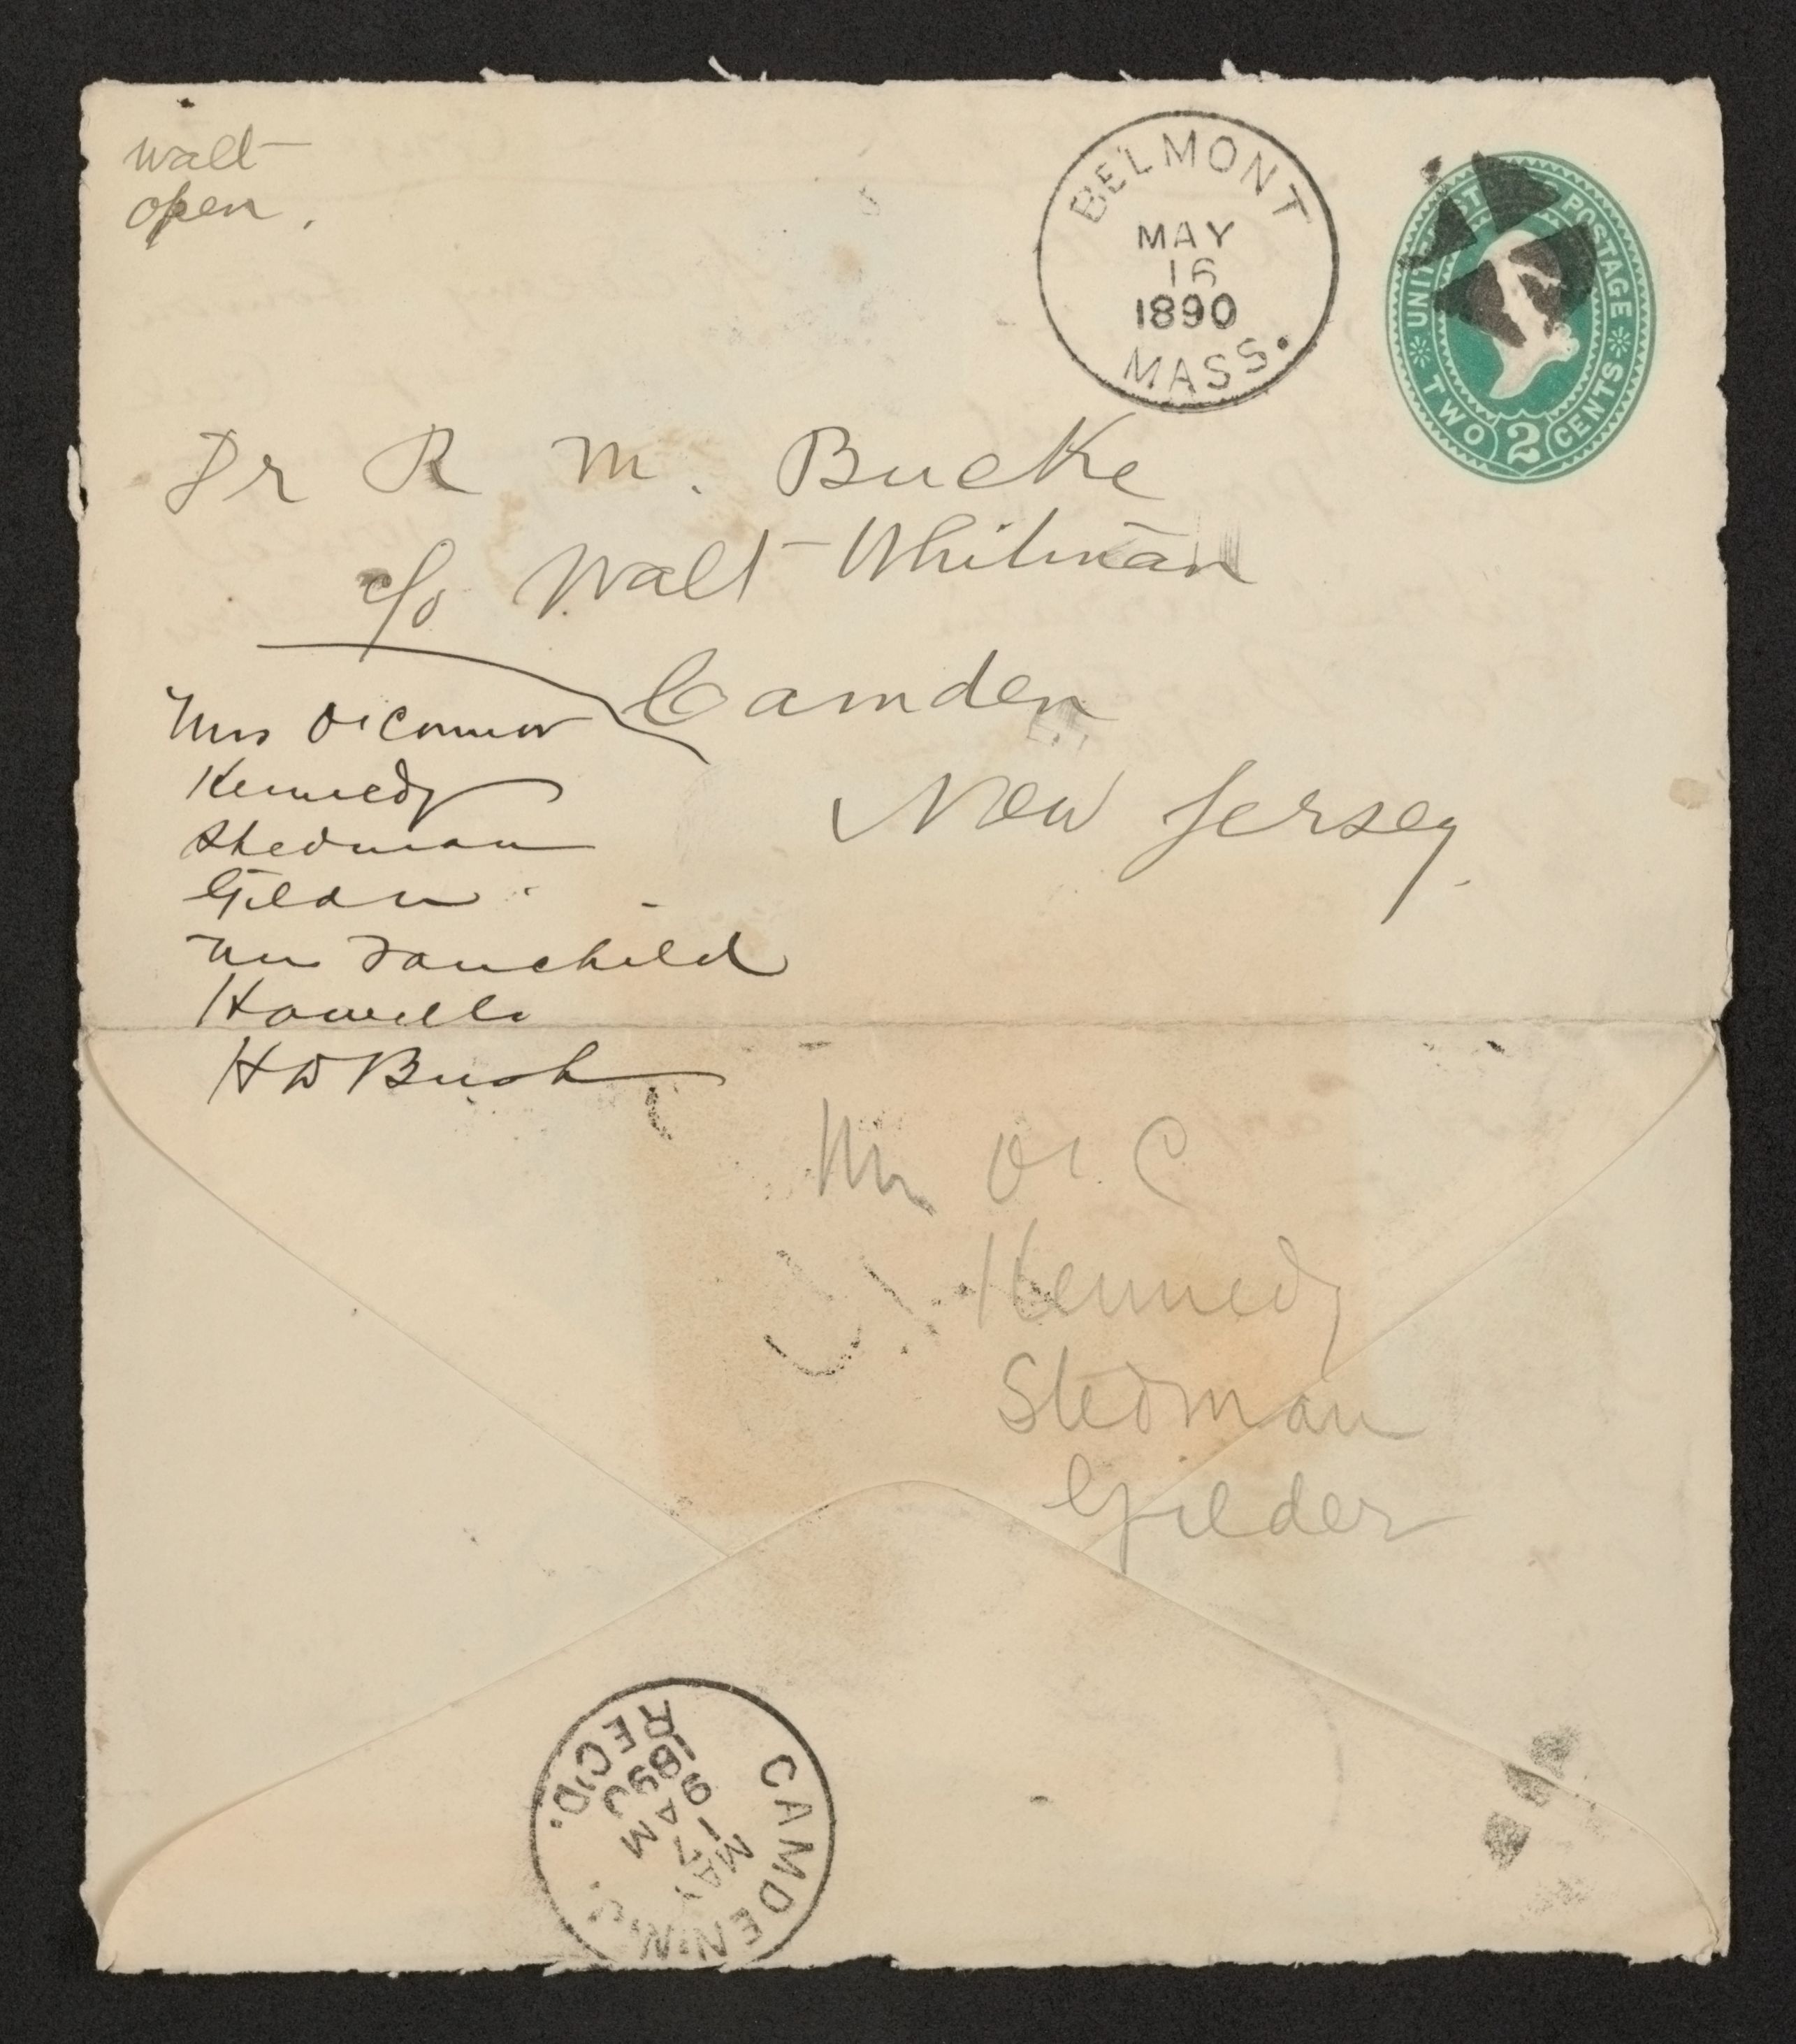 Walt
open.
BELMONT
MAY
16
1890
MASS.
UNITED STATES POSTAGE
TWO 2 CENTS
Dr R M. Bucke
c/o Walt Whitman
Camden
New Jersey.
Mrs O'Connor
Kennedy
Stedman
Gilder
Mrs Fairchild
Howells
H D Bush
Mrs O'C
Kennedy
Stedman
Gilder
CAMDEN, N.J.
MAY
17
9 AM
1890
REC'D.